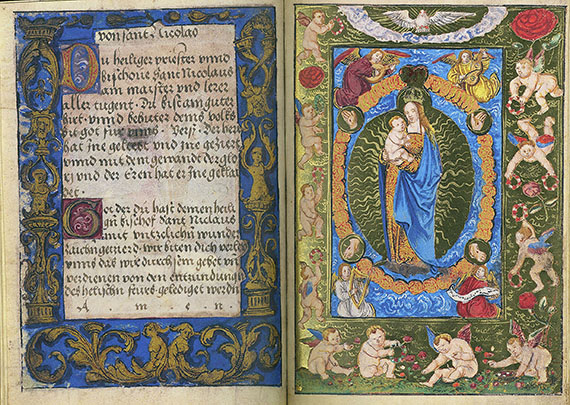 von sant Nicolao
Du heiliger priester vnnd
bischoue Sant Nicolaus
ain maister vnd lerer
aller tugent. Du bist ain guter
hirt. vnd behüter deins volks
bit got für vnns. Vers. Der herr
hat jne geliebt vnd jne geziert
vnnd mit dem gewandt der glo
rj vnd der Eren hat er jne geklai
det.
Got der du hast deinen heili
gen bischof Sant Niclaus
mit vntzelichn wunder
zaichn geziert. wir biten dich verleich
vnns das wir durch sein gebet vn
verdienen von den entzündung
des helischn feurs geledigt werdn
A m e n